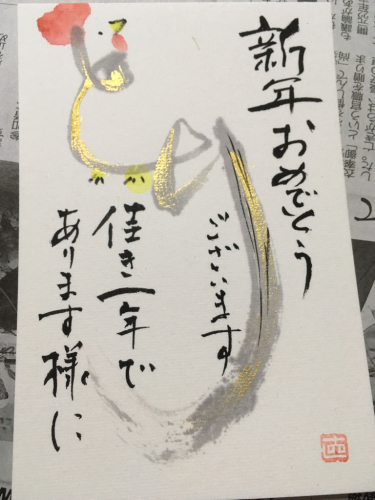 新年おめでとう
ございます
佳き一年で
あります様に